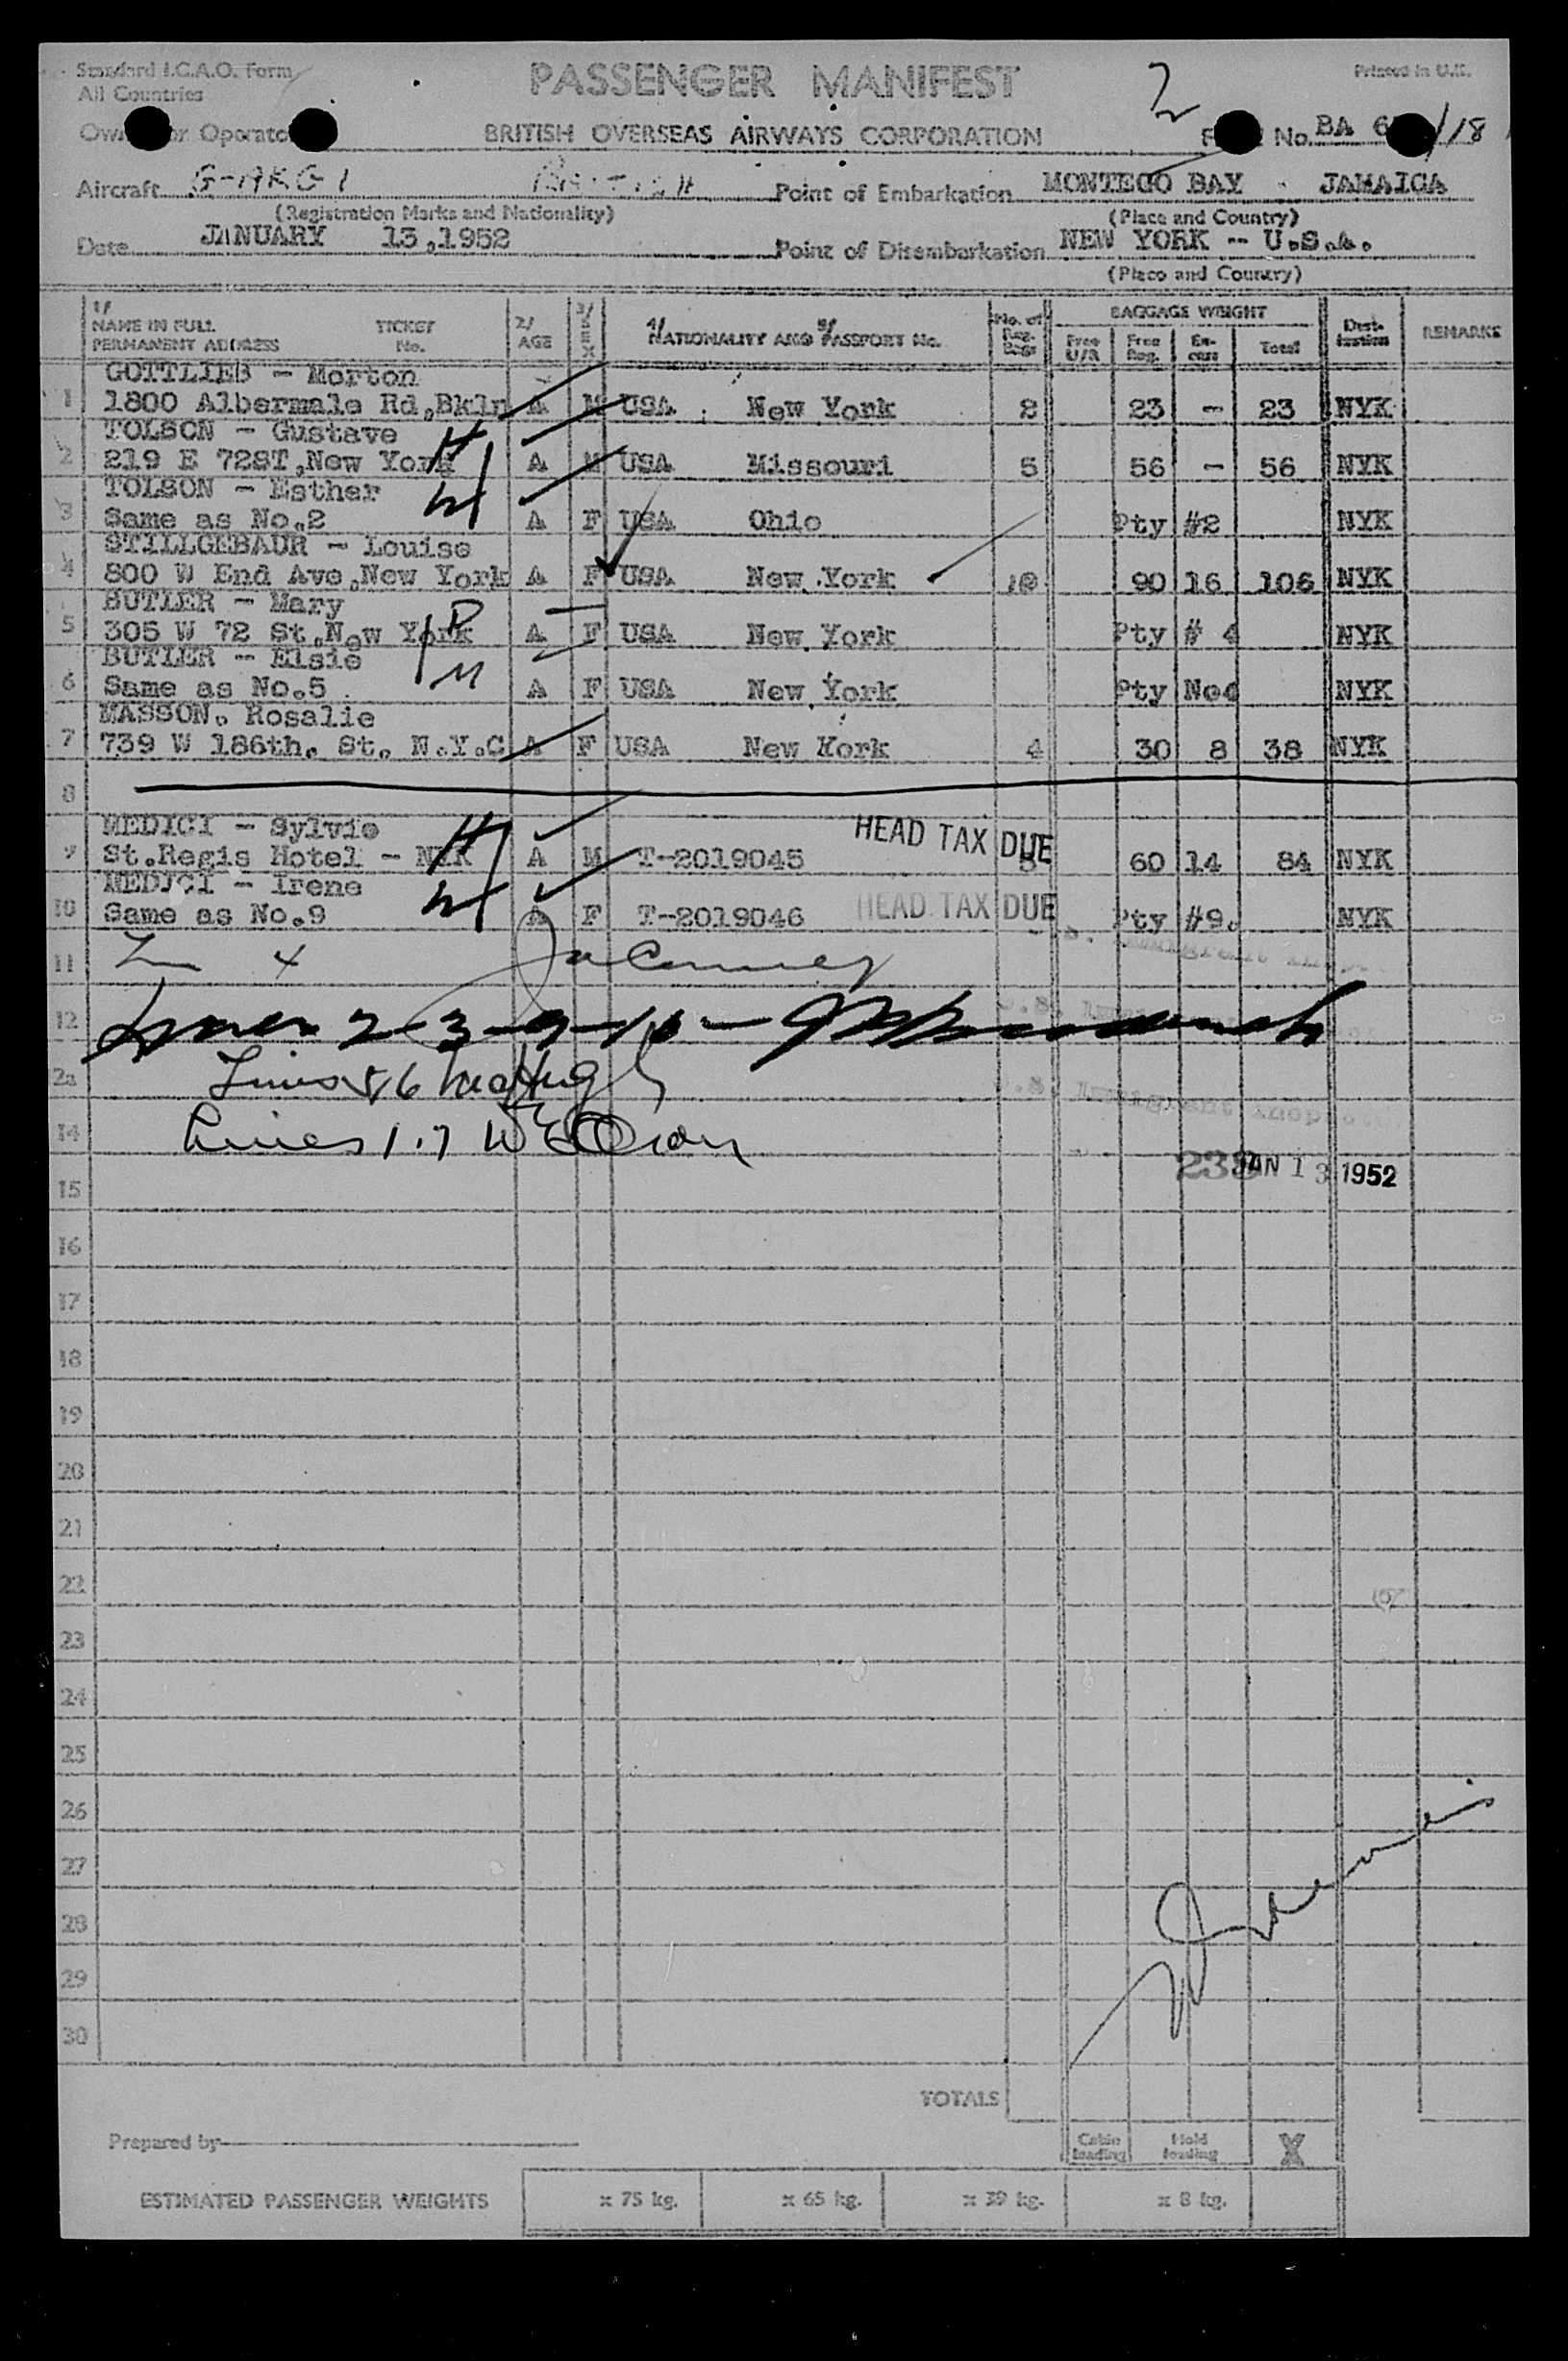 Standard I.C.A.O. Form
All Countries
PASSENGER MANIFEST
Printed in U.K.
2
BRITISH OVERSEAS AIRWAYS CORPORATION
No. BA 6 /18
Aircraft G-AKGI British Point of Embarkation MONTEGO BAY - JAMAICA
(Registration Marks and Nationality) (Place and Country)
Date JANUARY 13,1952 Point of Disembarkation NEW YORK -- U.S.A.
(Place and Country)
1/ NAME IN FULL PERMANENT ADDRESS TICKET No. 2/ AGE 3/ SEX 4/ NATIONALITY AND 5/ PASSPORT No. No. of Reg. Bags BAGGAGE WEIGHT Free U/R Free Reg. Excess Total Destination REMARKS
GOTTLIEB - Morton
1 1800 Albermale Rd,Bkln A M USA New York 2 23 - 23 NYK
TOLSON - Gustave
2 219 E 72ST,New York A M USA Missouri 5 56 - 56 NYK
TOLSON - Esther
3 Same as No.2 A F USA Ohio Pty #2 NYK
STILLGEBAUR - Louise
4 800 W End Ave,New York A F USA New York 10 90 16 106 NYK
BUTLER - Mary
5 305 W 72 St,New York A F USA New York Pty # 4 NYK
BUTLER - Elsie
6 Same as No.5 A F USA New York Pty No4 NYK
MASSON. Rosalie
7 739 W 186th. St. N.Y.C A F USA New York 4 30 8 38 NYK
8
MEDICI - Sylvie
9 St.Regis Hotel - NYK A M T-2019045 HEAD TAX DUE 60 14 84 NYK
MEDICI - Irene
10 Same as No.9 A F T-2019046 HEAD TAX DUE Pty #9. NYK
11
12 Lines 2-3-9-10-
2a Lines 5 6
U.S. Immigrant Inspector
14 Lines 1.7
238 JAN 13 1952
15
16
17
18
19
20
21
22
23
24
25
26
27
28
29
30
TOTALS
Prepared by
Cabin loading Hold loading X
ESTIMATED PASSENGER WEIGHTS x 75 kg. x 65 kg. x 39 kg. x 8 kg.